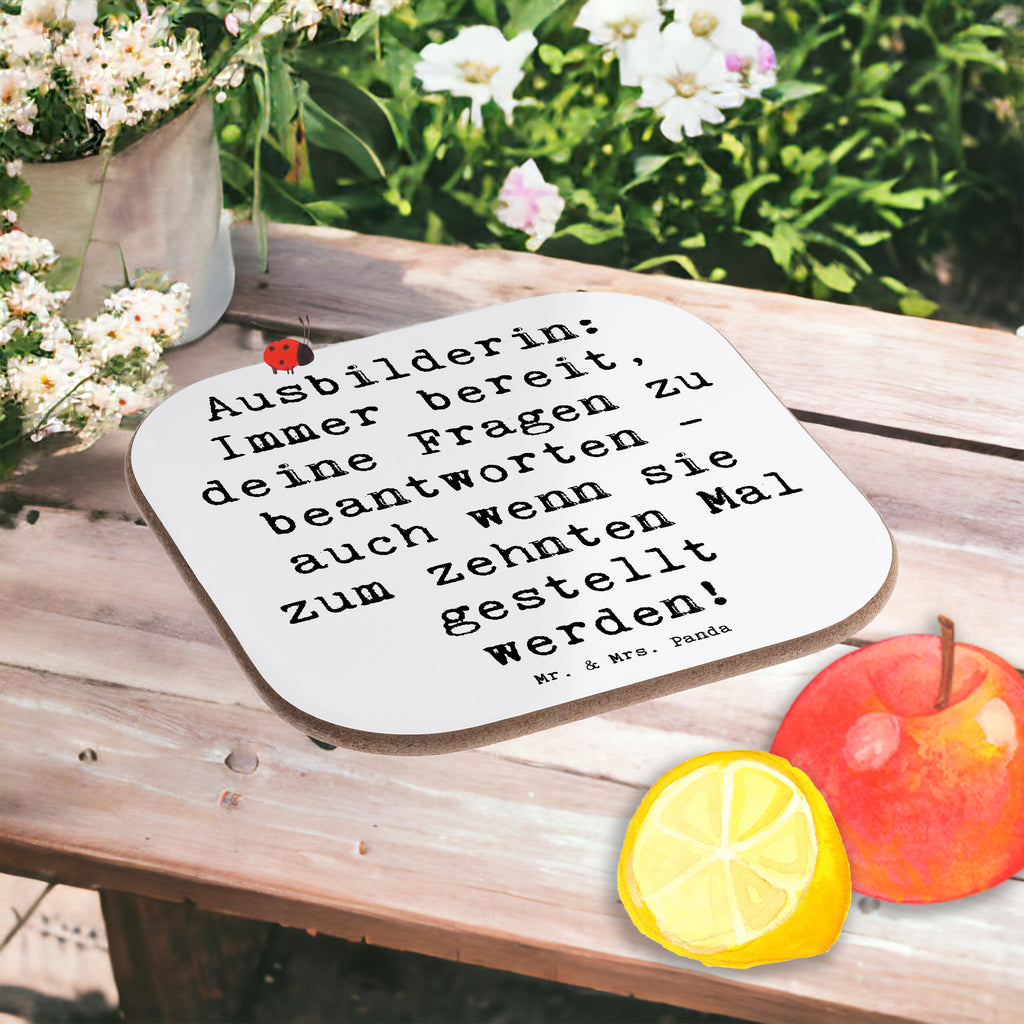 Ausbilderin:
Immer bereit,
deine Fragen zu
beantworten -
auch wenn sie
zum zehnten Mal
gestellt
werden!
Mr. & Mrs. Panda